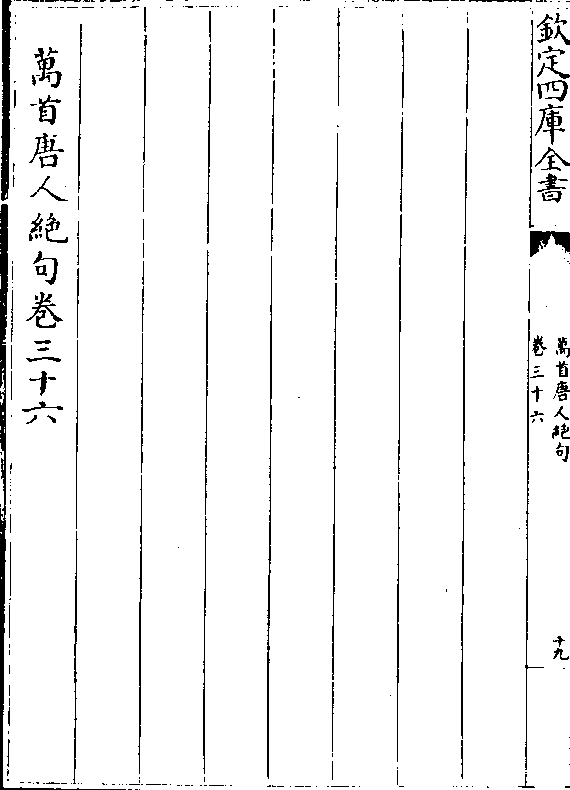 欽定四庫全書
萬首唐人絕句
卷三十六
十九
萬首唐人絕句卷三十六